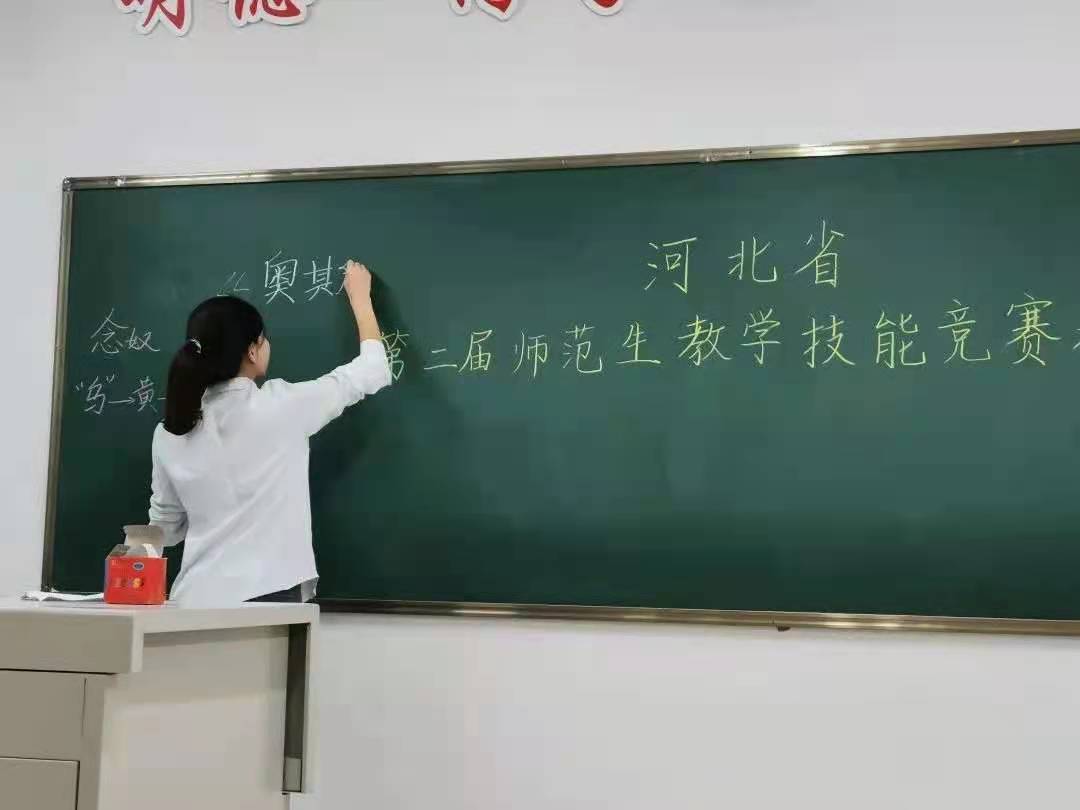 河北省
第二届师范生教学技能竞赛
《奥其
念奴
"乌"→黄